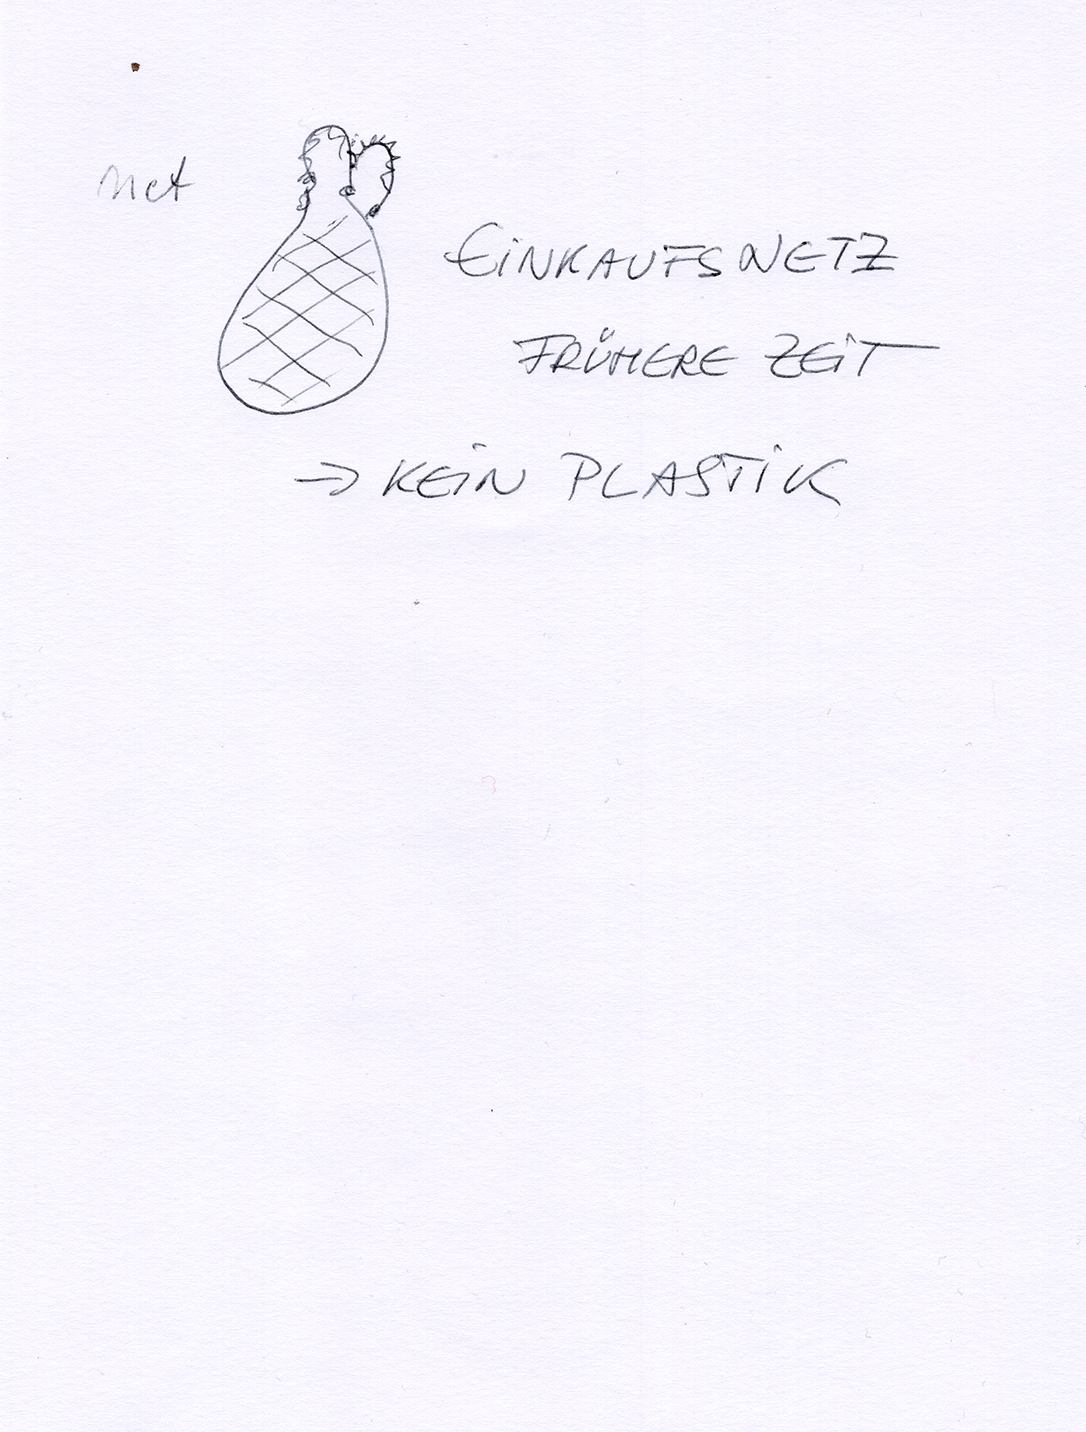 net
EINKAUFSNETZ
FRÜHERE ZEIT
→ KEIN PLASTIK